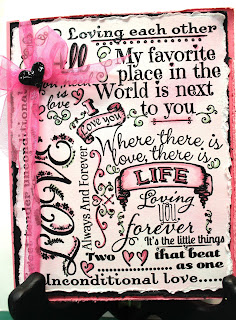 Loving each other
All
My favorite
place in the
World is next
to you
you need
is love
I
Love you
LOVE
Always And Forever
Where there is
love, there is
LIFE
Loving
YOU
forever
It's the little things
Two
that beat
as one
Unconditional love....